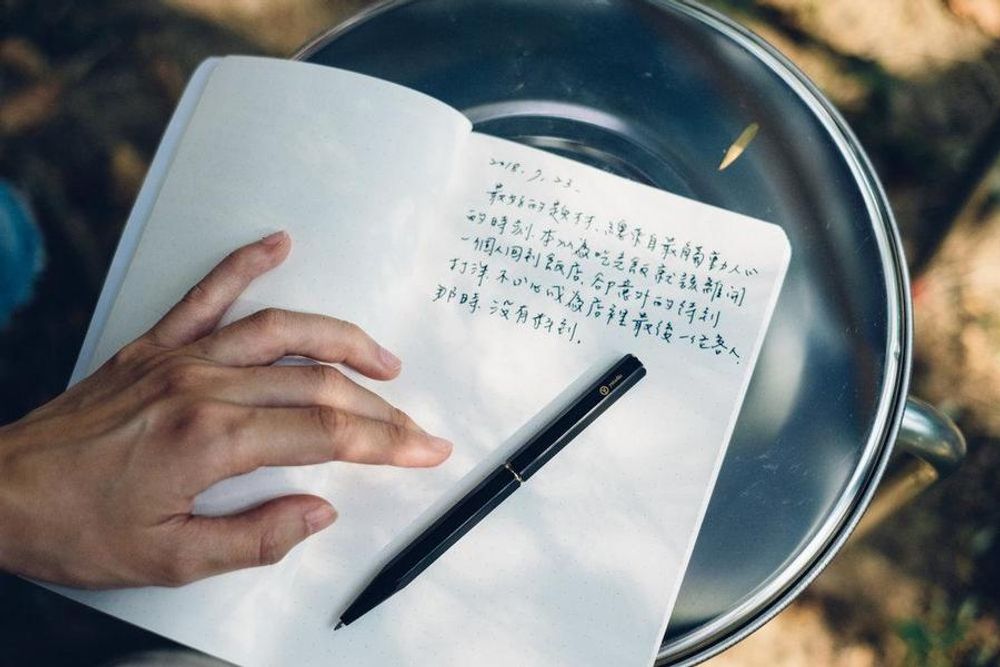 2018.9.23.
最好的題材、總來自最觸動人心
的時刻.本以為吃完飯就該離開
一個人回到飯店.卻意外的待到
打烊.不小心成為店裡最後一位客人.
那時.沒有拍到.
ystudio